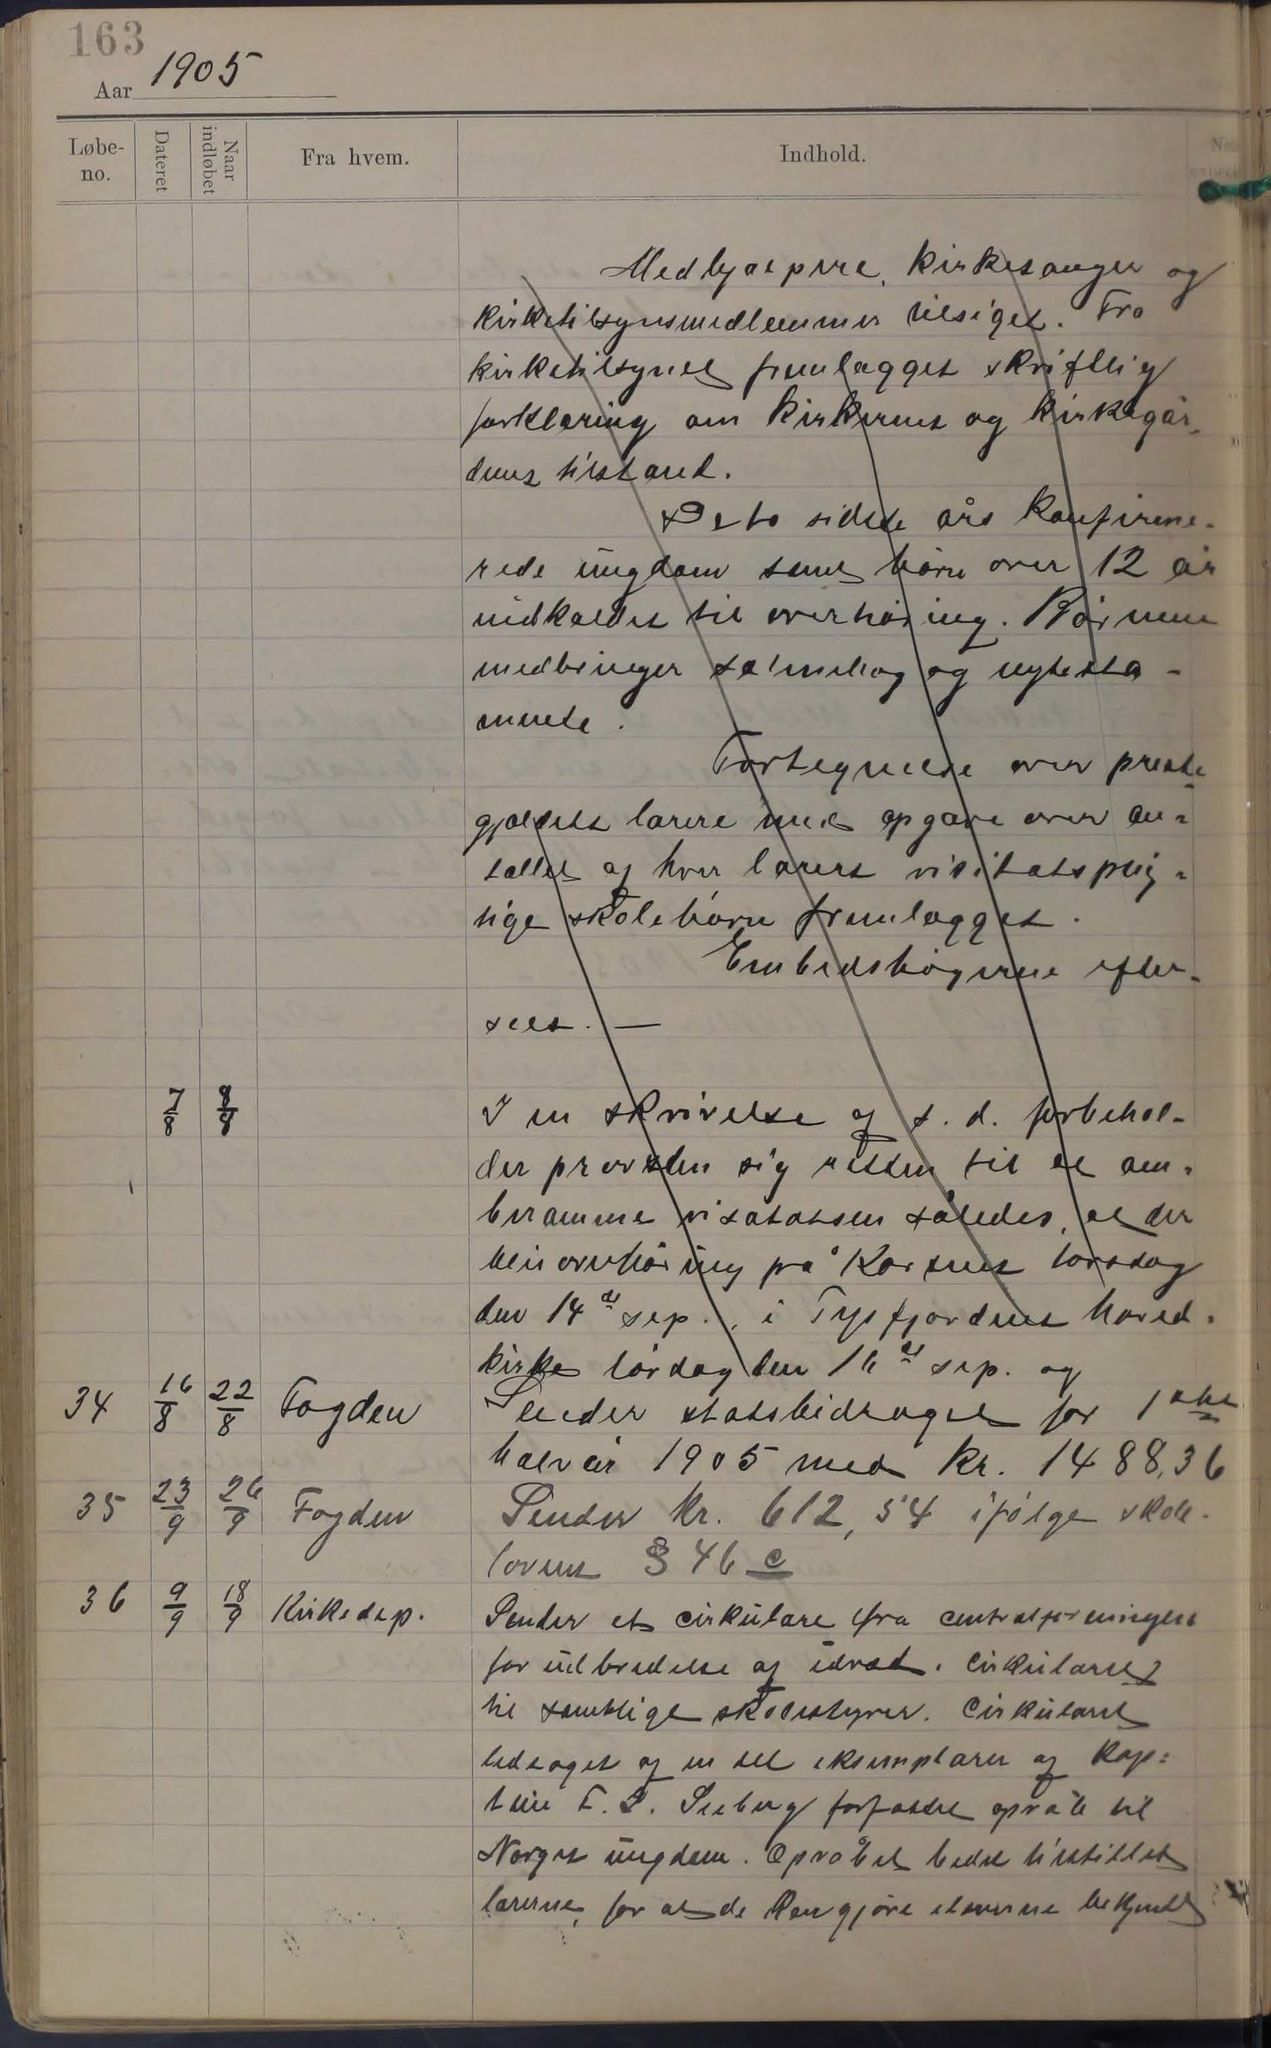 163
Aar 1905
Løbe-
no.
Dateret
Naar
indløbet
Fra hvem.
Indhold.
Medhjælpere, kirkesanger og
kirketilsynsmedlemmer tilsiges. Fra
kirketilsynet fremlægges skriftlig
forklaring om kirkernes og kirkegår-
denes tilstand.
De to sidste års konfirme-
rede ungdom samt børn over 12 år
indkaldes til overhøring. Børnene
medbringer salmebog og nytesta-
mente.
Fortegnelse over preste-
gjældets lærere med opgave over an-
tallet af hver lærers visitatsplig-
tige skolebørn fremlægges.
Embedsbøgerne efter-
sees. —
7/8 8/8 I en skrivelse af s. d. forbehol-
der provsten sig retten til at am-
beramme visatatsen således, at der
blir overhøring på Korsnes torsdag
den 14de sep., i Tysfjordens hoved-
kirke lørdag den 16de sep. og
34 16/8 22/8 Fogden Sender statsbidraget for 1ste
halvår 1905 med kr. 1488,36
35 23/9 26/9 Fogden Sender kr. 612,54 ifølge skole-
lovens § 46 c
36 9/9 18/9 Kirkedep. Sender et cirkulære fra centralforeningen
for udbredelse af idræt. Cirkulæret
til samtlige skolestyrer. Cirkulæret
ledsaget af en del eksemplarer af kap-
tein F. S. Seeberg forfattet opråb til
Norges ungdom. Opråbet bedes tilstillet
lærerne, for at de kan gjøre eleverne bekjendt